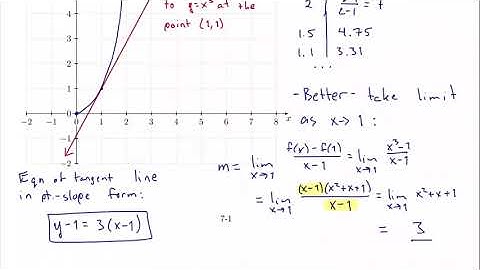 to y=x³ at the
point (1,1)
2 | /(2-1) = 7
1.5 | 4.75
1.1 | 3.31
. . .
4
3
2
1
0
-1
-2
-2 -1 0 1 2 3 4 5 6 7 8 x
-Better- take limit
as x→1 :
m = lim x→1 (f(x)-f(1))/(x-1) = lim x→1 (x³-1)/(x-1)
= lim x→1 ((x-1)(x²+x+1))/(x-1) = lim x→1 x²+x+1
= 3
Eqn of tangent line
in pt.-slope form:
y-1 = 3(x-1)
7-1